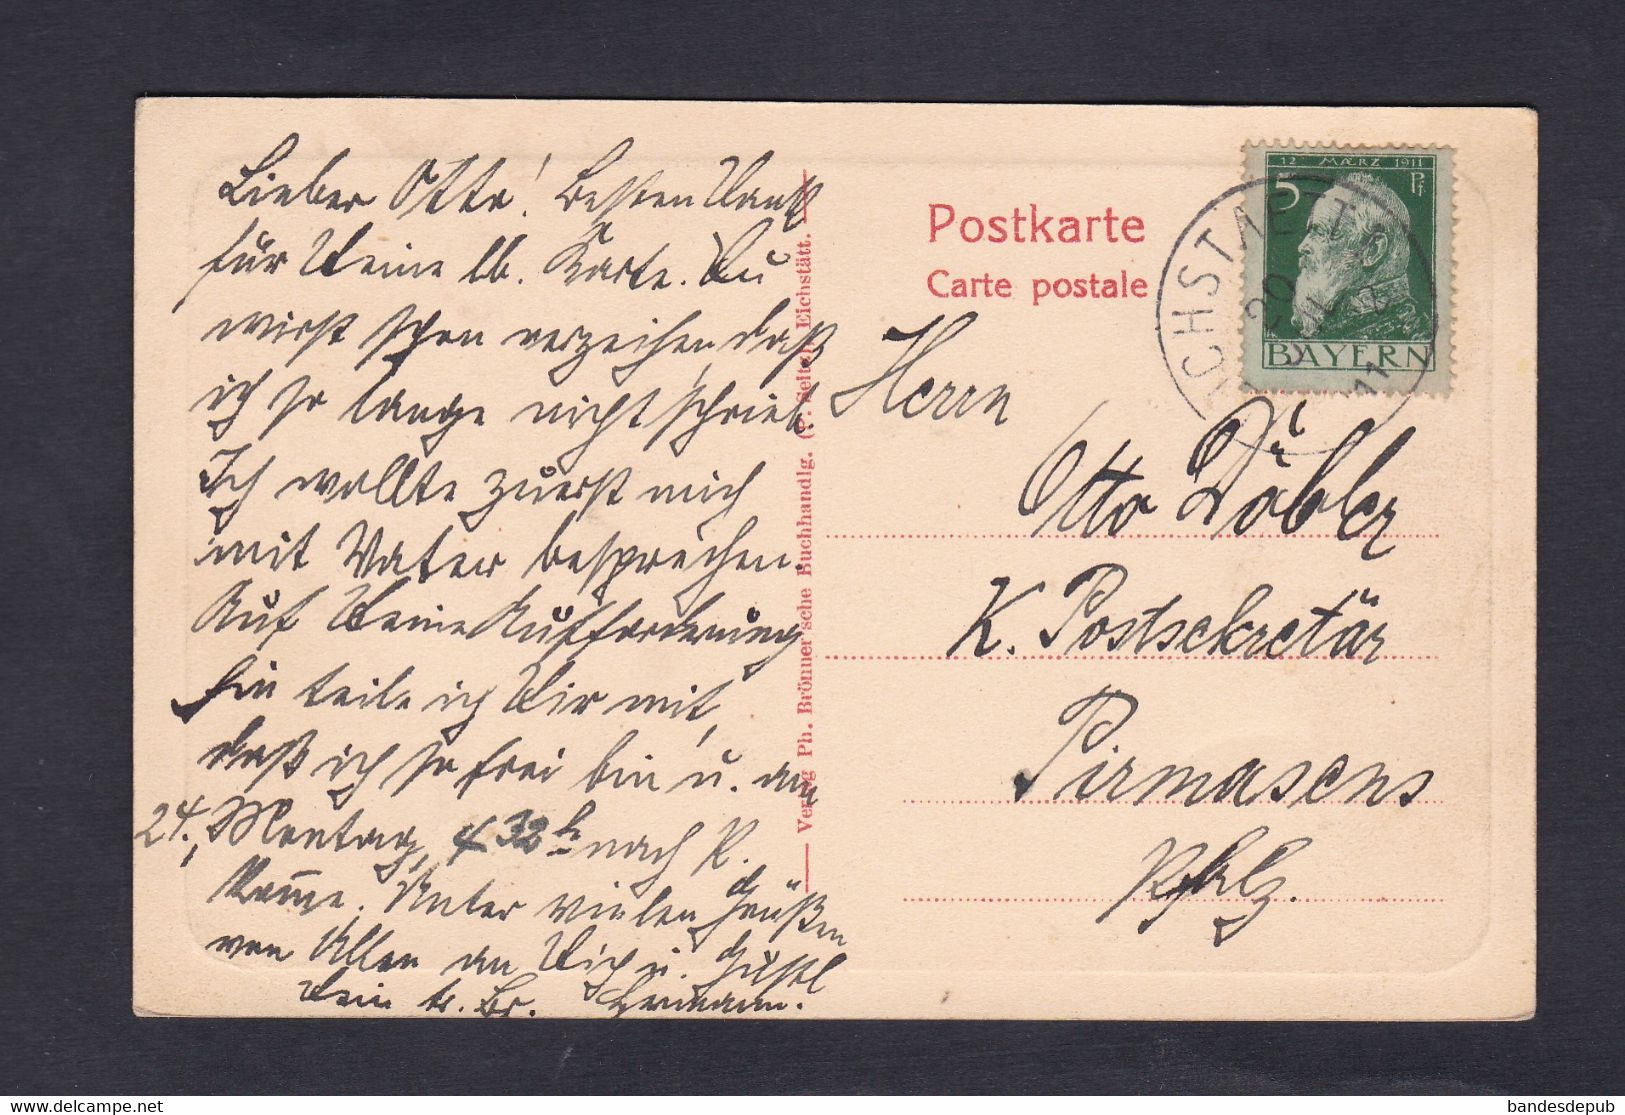 Lieber Otto! Besten Dank
für Deine lb. Karte. Du
wirst schon verzeihen, daß
ich so lange nicht schrieb.
Ich wollte zuerst mich
mit Vater besprechen.
Auf Deine Aufforderung
hin teile ich Dir mit,
daß ich so frei bin u. am
24., Montag, 4 32 h nach P.
komme. Unter vielen Grüßen
von Allen an Dich u. Gustl
Dein tr. Br. Hermann.
Verlag Ph. Brönner'sche Buchhandlg. (P. Seitz) Eichstätt.
Postkarte
Carte postale
12 MÆRZ 1911
5 Pf
BAYERN
ICHSTAETT
20
11
Herrn
Otto Döbler
K. Postsekretär
Pirmasens
Pfalz.
delcampe.net
bandesdepub